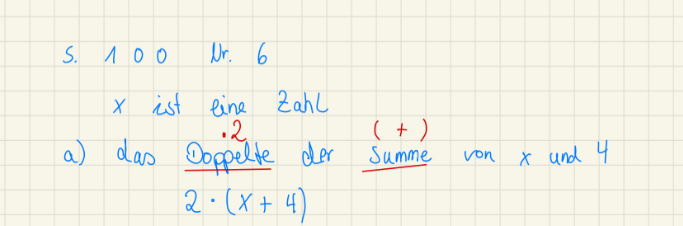 S. 100 Nr. 6
x ist eine Zahl
·2 ( + )
a) das Doppelte der Summe von x und 4
2 · (x + 4)